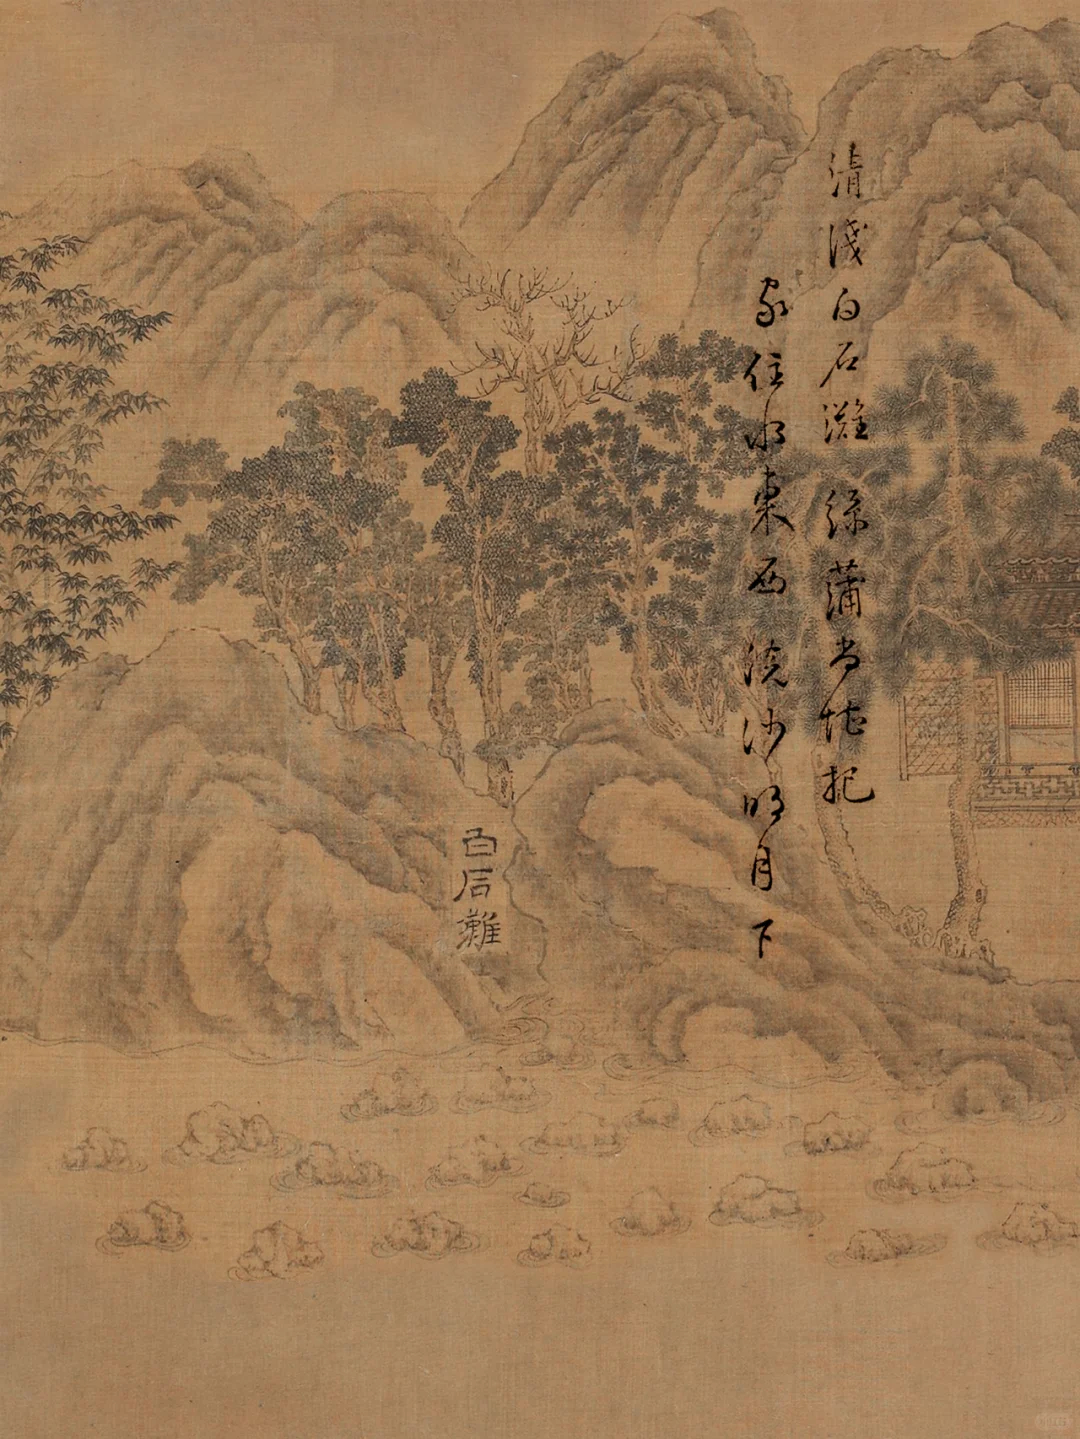 清淺白石灘 綠蒲尚堪把
家住水東西 浣沙明月下
白石灘